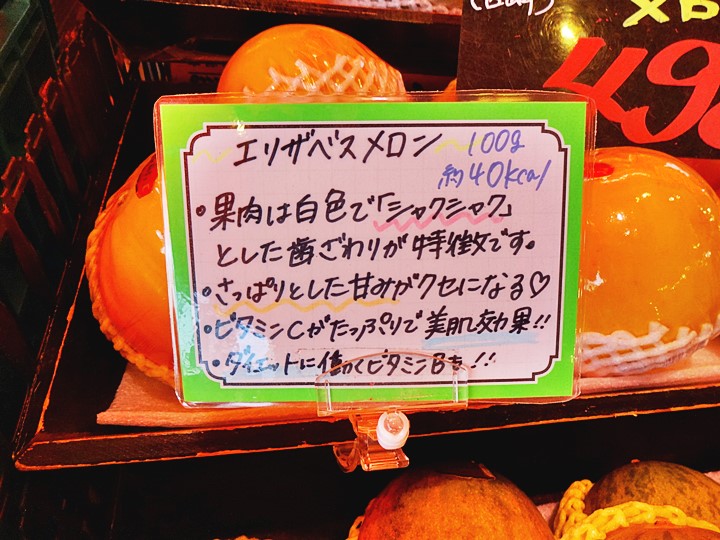 エリザベスメロン 100g
約40kcal
・果肉は白色で「シャクシャク」
とした歯ざわりが特徴です。
・さっぱりとした甘みがクセになる♡
・ビタミンCがたっぷりで美肌効果!!
・ダイエットに働くビタミンBも!!
498